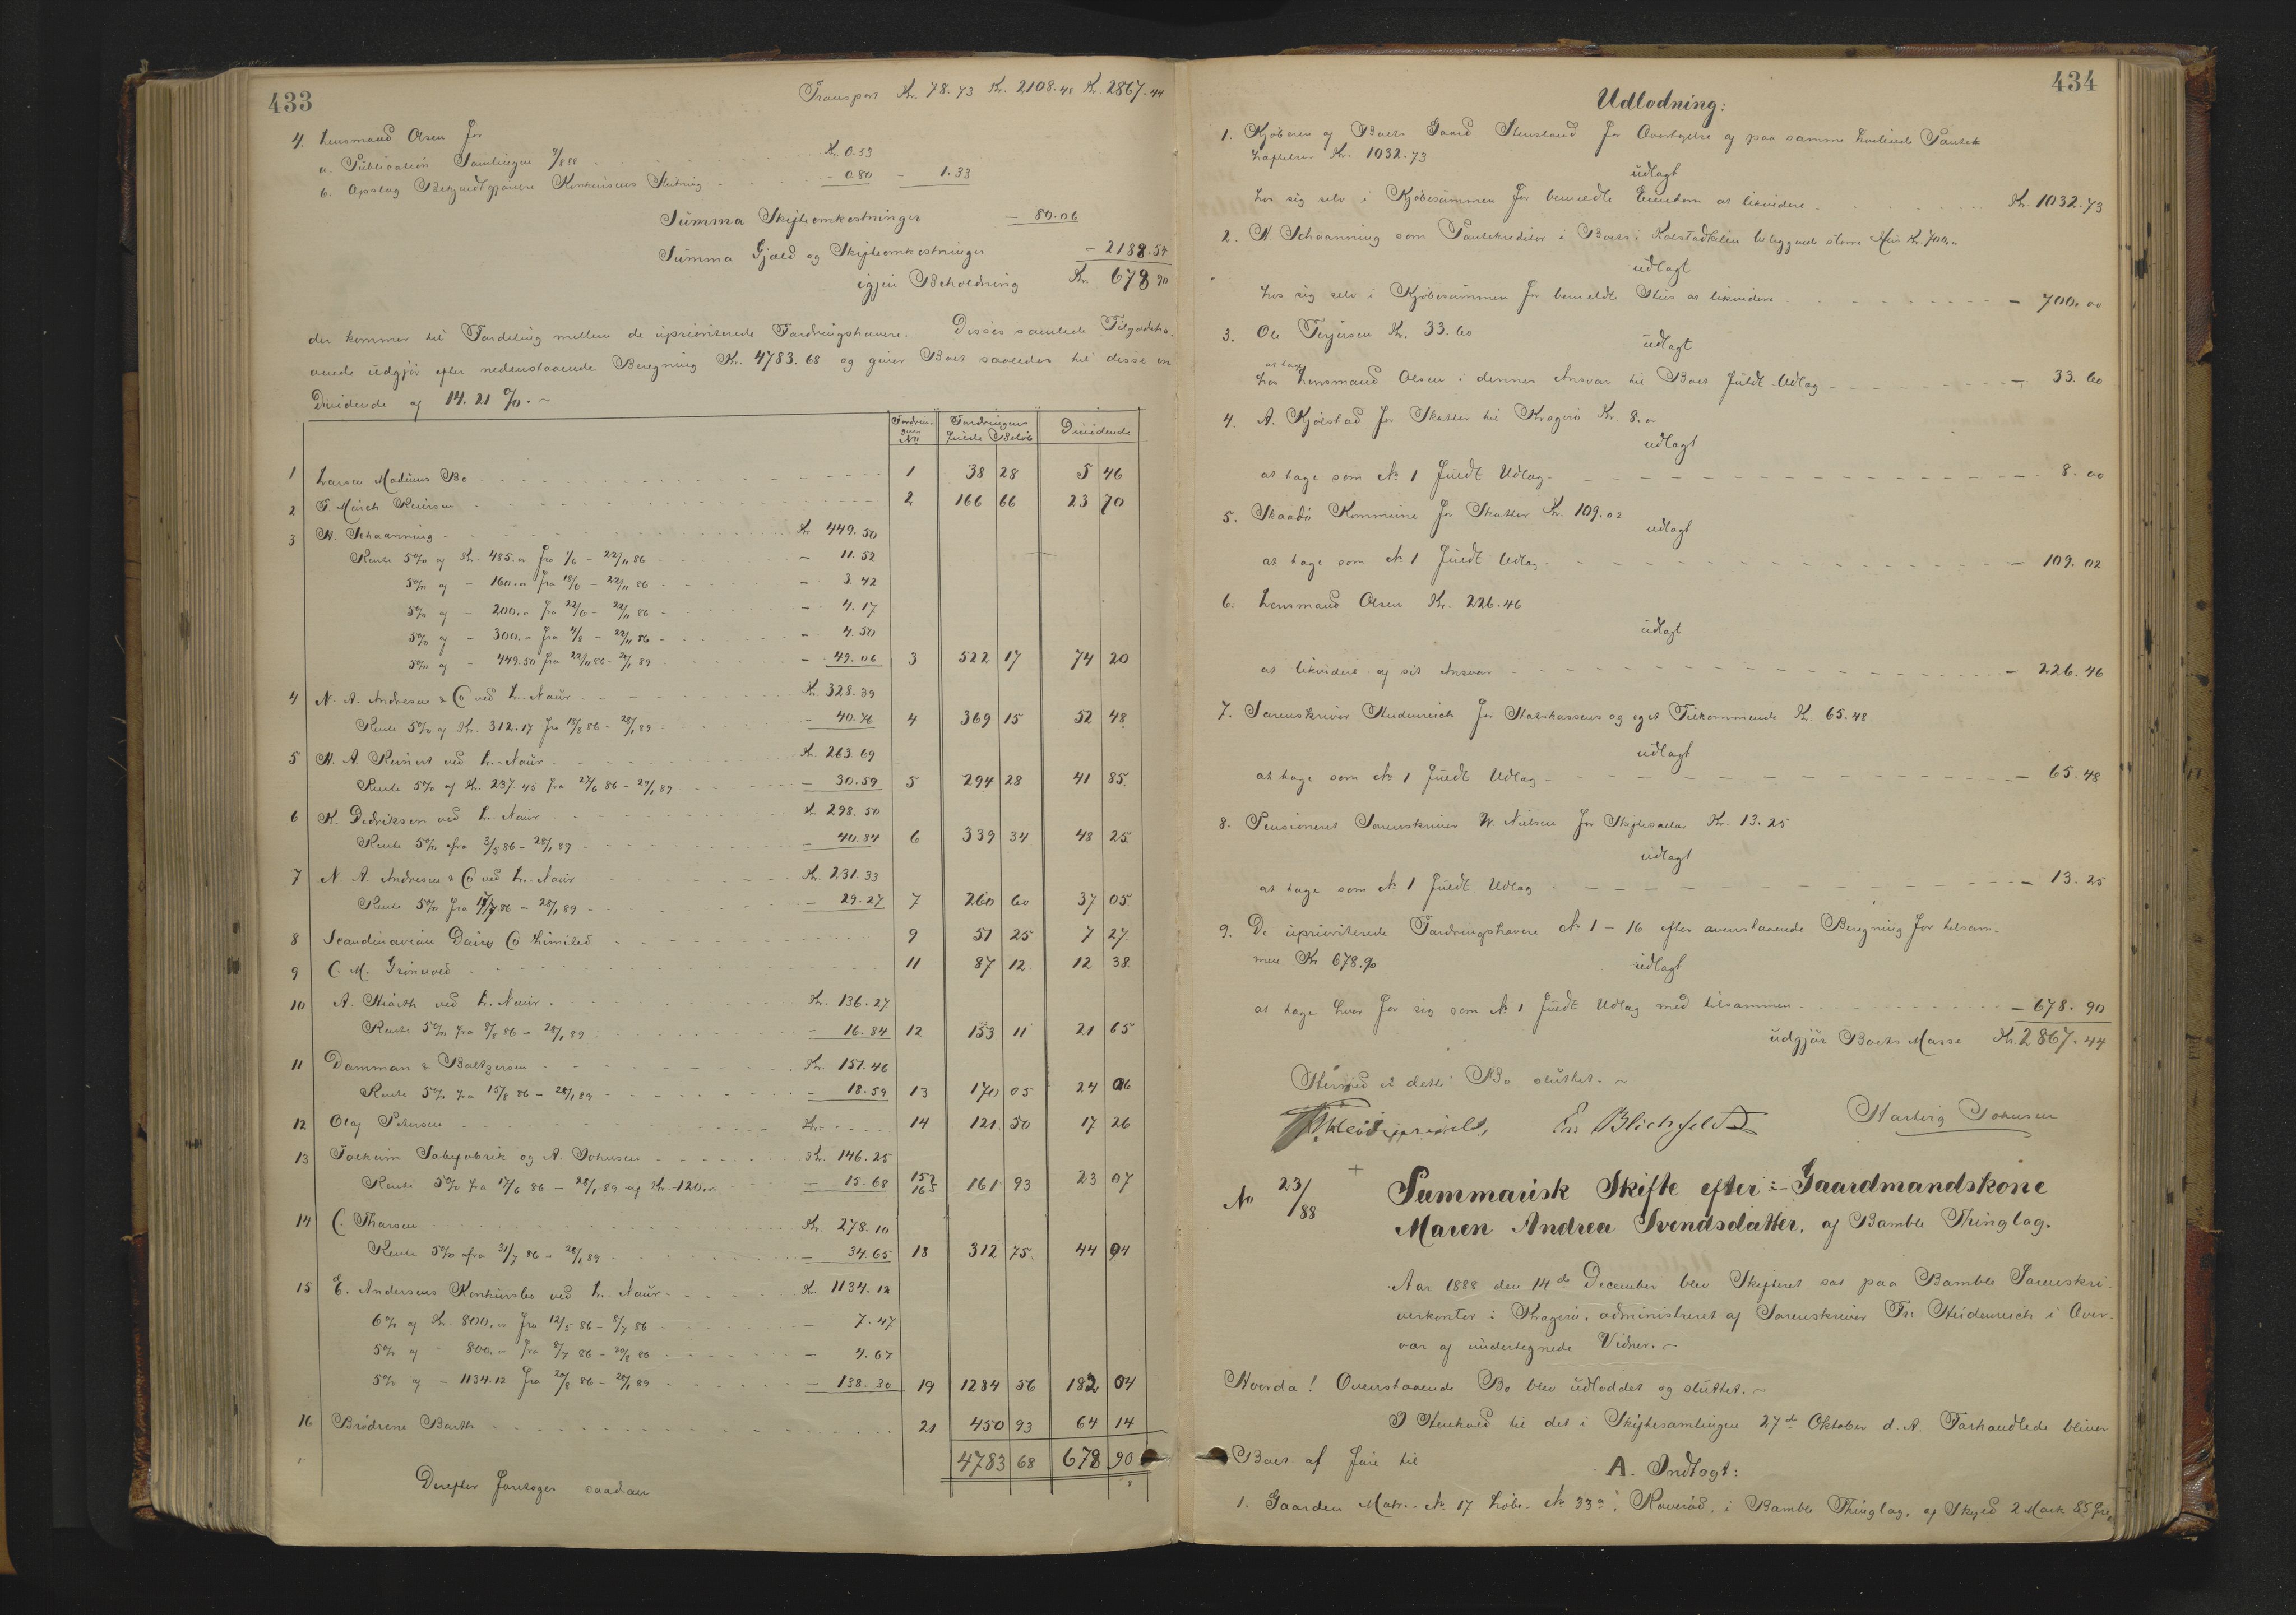 433
Transport Kr. 78.73 Kr. 2108.48 Kr. 2867.44
4. Lensmand Olsen for
a. Publication Samlingen 9/8 88 Kr. 0.53
b. Opslag Bekjendtgjørelse Konkursens Slutning - 0.80 - 1.33
Summa Skifteomkostninger - 80.06
Summa Gjæld og Skifteomkostninger - 2188.54
igjen Beholdning Kr. 678.90
der kommer til Fordeling mellem de uprioriterede Fordringshavere. Disses samlede Tilgodeha-
vende udgjør efter nedenstaaende Beregning Kr. 4783.68 og giver Boet saaledes til disse en
Dividende af 14.21 %. ~
Fordrin-gens No Fordringens fulde Beløb Dividende
1 Larsen Madiums Bo 1 38 28 5 46
2 T. March Reiersen 2 166 66 23 70
3 N. Schaanning Kr. 449.50
Rente 5% af Kr. 485.00 fra 1/6 - 22/11 86 - 11.52
5% af - 160.00 fra 18/6 - 22/11 86 - 3.42
5% af - 200.00 fra 22/6 - 22/11 86 - 4.17
5% af - 300.00 fra 4/8 - 22/11 86 - 4.50
5% af - 449.50 fra 22/11 86 - 28/1 89 - 49.06 3 522 17 74 20
4 N. A. Andresen & Co ved L. Naur Kr. 328.39
Rente 5% af Kr. 312.17 fra 18/6 86 - 28/1 89 - 40.76 4 369 15 52 48
5 H. A. Reinert ved L. Naur Kr. 263.69
Rente 5% af Kr. 237.45 fra 27/6 86 - 29/1 89 - 30.59 5 294 28 41 85
6 K. Dedriksen ved L. Naur Kr. 298.50
Rente 5% fra 3/5 86 - 28/1 89 - 40.84 6 339 34 48 25
7 N. A. Andresen & Co ved L. Naur Kr. 231.33
Rente 5% fra 17/7 86 - 28/1 89 - 29.27 7 260 60 37 05
8 Scandinavian Dairy Co Limited 9 51 25 7 27
9 C. M. Grönvold 11 87 12 12 38
10 A. Hiorth ved L. Naur Kr. 136.27
Rente 5% fra 8/8 86 - 28/1 89 - 16.84 12 153 11 21 65
11 Damman & Baltzersen Kr. 151.46
Rente 5% fra 15/8 86 - 28/1 89 - 18.59 13 170 05 24 06
12 Olaf Petersen Kr. 14 121 50 17 26
13 Falkum Sæbefabrik og A. Johnsen Kr. 146.25
Rente 5% fra 17/6 86 - 28/1 89 af Kr. 120.00 - 15.68 15 & 16 161 93 23 07
14 C. Tharsen Kr. 278.10
Rente 5% fra 31/7 86 - 28/1 89 - 34.65 18 312 75 44 94
15 E. Andersens Konkursbo ved L. Naur Kr. 1134.12
6% af Kr. 800.00 fra 12/5 86 - 8/7 86 - 7.47
5% af - 800.00 fra 8/7 86 - 20/8 86 - 4.67
5% af - 1134.12 fra 20/8 86 - 28/1 89 - 138.30 19 1284 56 182 04
16 Brödrene Barth 21 450 93 64 14
4783 68 678 90
Derefter foretoges saadan
434
Udlodning:
1. Kjøberen af Boets Gaard Stensland for Overtagelse af paa samme hvilende Pantek
hæftelser Kr. 1032.73
udlagt
hos sig selv i Kjøbesummen for bemeldte Eiendom at likvidere Kr. 1032.73
2. N. Schaanning som Pantekreditor i Boets i Kalstadkilen beliggende større Hus Kr. 700.00
udlagt
hos sig selv i Kjøbesummen for bemeldte Hus at likvidere - 700.00
3. Ole Terjersen Kr. 33.60
udlagt
at tage
hos Lensmand Olsen i dennes Ansvar til Boet fuldt Udlag - 33.60
4. A. Kjølstad for Skatter til Kragerø Kr 8.00
udlagt
at tage som No 1 fuldt Udlag - 8.00
5. Skaadø Kommune for Skatter Kr. 109.02
udlagt
at tage som No 1 fuldt Udlag - 109.02
6. Lensmand Olsen Kr. 226.46
udlagt
at likvidere af sit Ansvar - 226.46
7. Sorenskriver Heidenreich for Statskassens og eget Tilkommende Kr. 65.48
udlagt
at tage som No 1 fuldt Udlag - 65.48
8. Pensioneret Sorenskriver W. Nielsen for Skiftesalær Kr. 13.25
udlagt
at tage som No 1 fuldt Udlag - 13.25
9. De uprioriterede Fordringshavere No 1 - 16 efter ovenstaaende Beregning for tilsam-
men Kr 678.90
udlagt
at tage hver for sig som No 1 fuldt Udlag med tilsammen - 678.90
udgjør Boets Masse Kr. 2867.44
Hermed er dette Bo sluttet. ~
Fr. Heidenreich. Er. Blichfeldt Hartvig Johnsen
No 23/88
Summarisk Skifte efter Gaardmandskone
Maren Andrea Svendsdatter, af Bamble Thinglag.
Aar 1888 den 14de December blev Skifteret sat paa Bamble Sorenskri-
verkontor i Kragerø, administreret af Sorenskriver Fr. Heidenreich i Over-
vær af undertegnede Vidner. ~
Hvorda! Ovenstaaende Bo blev udloddet og sluttet. ~
I Henhold til det i Skiftesamlingen 27de Oktober d. A. Forhandlede bliver
Boet at føre til
A. Indtægt:
1. Gaarden Matr. No 17 Løbe No 33a, Roverød, i Bamble Thinglag, af Skyld 2 Mark 85 Øre